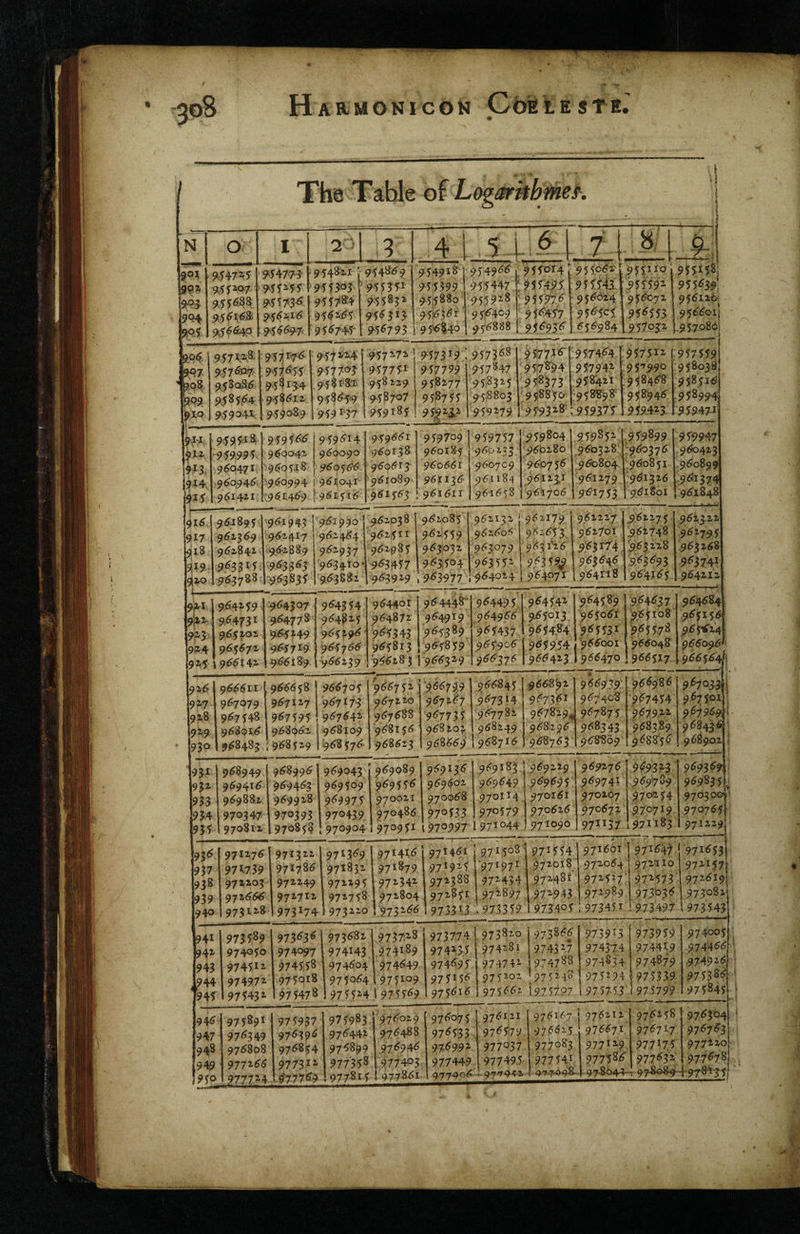 308 HARMONICON COELESTE.
The Table of Logarithmes.
N 0 1 2 3 4 5 6 7 8 9
901 954725 954773 954821 954869 954918 954966 955014 955062 955110 955158
902 955207 955255 955303 955351 955399 955447 955495 955543 955592 955639
903 955688 955736 955784 955832 955880 955928 955976 956024 956072 956120
904 956168 956216 956265 956313 956361 956409 956457 956505 956553 956601
905 956640 956697 956745 956793 956840 956888 956936 656984 957032 957080
906 957128 957176 957224 957272 957319 957368 957716 957464 957512 957559
907 957607 957655 957703 957751 957799 957847 957894 957942 957990 958038
908 958086 958134 958181 958229 958277 958325 958373 958421 958468 958516
909 958564 958612 958659 958707 958755 958803 958850 958898 958946 958994
910 959041 959089 959137 959185 959232 959279 959328 959375 959423 959471
911 959518 959566 959614 959661 959709 959757 959804 959852 959899 959947
912 959995 960042 960090 960138 960185 960233 960280 960328 960376 960423
913 960471 960518 960566 960613 960661 960709 960756 960804 960851 960899
914 960946 960994 961041 961089 961136 961184 961231 961279 961326 961374
915 961421 961469 961516 961563 961611 961658 961706 961753 961801 961848
916 961895 961943 961990 962038 962085 962132 962179 962227 962275 962322
917 962369 962417 962464 962511 962559 962606 962653 962701 962748 962795
918 962842 962889 962937 962985 963032 963079 963126 963174 963228 963268
919 963315 963363 963410 963457 963504 963552 963599 963646 963693 963741
920 963788 963835 963882 963929 963977 964024 964071 964118 964165 964212
921 964259 964307 964354 964401 964448 964495 964542 964589 964637 964684
922 964731 964778 964825 964872 964919 964966 965013 965061 965108 965156
923 965202 965249 965296 965343 965389 965437 965484 965531 965578 965624
924 965672 965719 965766 965813 965859 965906 965954 966001 966048 966096
925 966142 966189 966239 966283 966329 966376 966423 966470 966517 966564
926 966611 966658 966705 966752 966799 966845 966892 966939 966986 967033
927 967079 967127 967173 967220 967267 967314 967361 967408 967454 967501
928 967548 967595 967642 967688 967735 967782 967829 967875 967922 967969
929 968016 968062 968109 968156 968202 968249 968296 968343 968389 968436
930 968483 968529 968576 968623 968669 968716 968763 968809 968856 968902
931 968949 968996 969043 969089 969136 969183 969229 969276 969323 969369
932 969416 969463 969509 969556 969602 969649 969695 969741 969789 969835
933 969882 969928 969975 970021 970068 970114 970161 970207 970254 970300
934 970347 970393 970439 970486 970533 970579 970626 970672 970719 970765
935 970812 970858 970904 970951 970997 971044 971090 971137 971183 971229
936 971276 971322 971369 971416 971461 971508 971554 971601 971647 971653
937 971739 971786 971832 971879 971925 971971 972018 972064 972110 972157
938 972203 972249 972295 972342 972388 972434 972481 972527 972573 972619
939 972666 972712 972758 972804 972851 972897 972943 972989 973036 973082
940 973128 973174 973220 973266 973313 973359 973405 973451 973497 973543
941 973589 973636 973682 973728 973774 973820 973866 973913 973959 974005
942 974050 974097 974143 974189 974235 974281 974327 974374 974419 974466
943 974512 974558 974604 974649 974695 974742 974788 974834 974879 974926
944 974972 975018 975064 975109 975156 975202 975248 975294 975339 975386
945 975432 975478 975524 975569 975616 975662 975707 975753 975799 975845
946 975891 975937 975983 976029 976075 976121 976167 976212 976258 976304
947 976349 976396 976442 976488 976533 976579 976625 976671 976717 976763
948 976808 976854 976899 976946 976992 977037 977083 977129 977175 977220
949 977266 977312 977358 977403 977449 977495 977541 977586 977632 977678
950 977724 977769 977815 977861 977906 977952 977998 978043 978089 978135